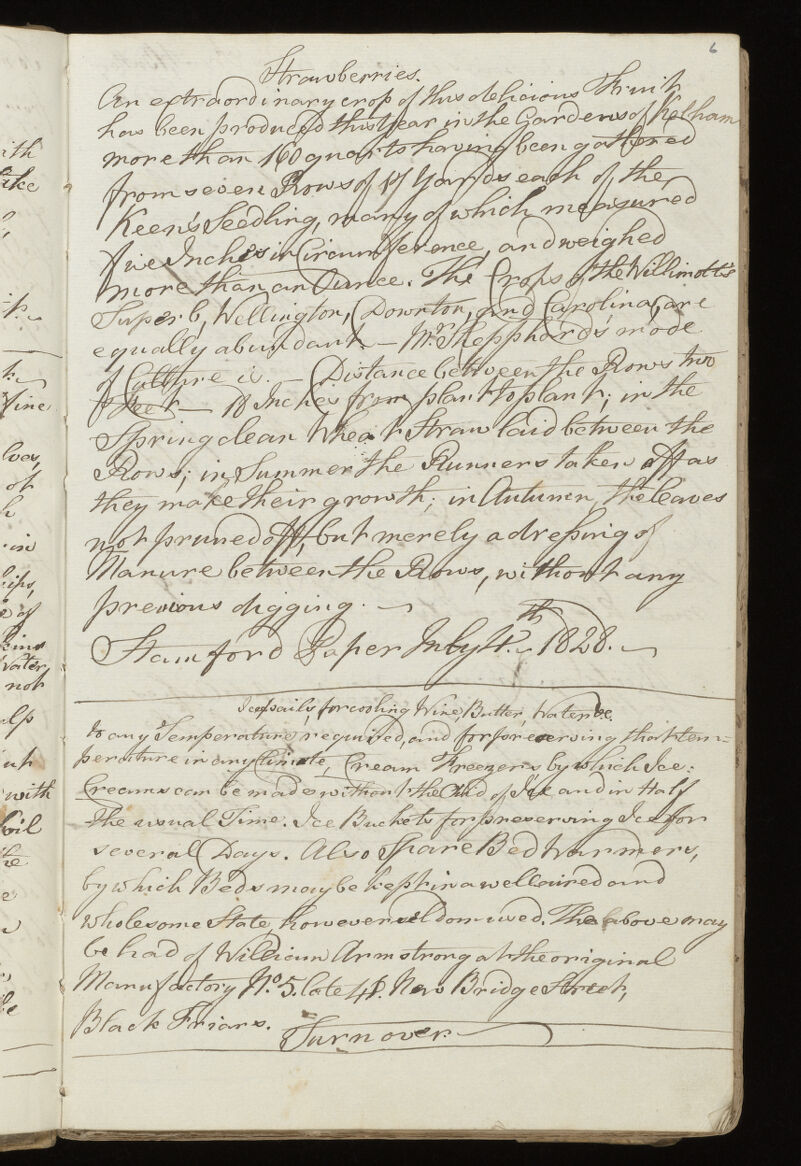 6
Strawberries.
An extraordinary crop of this delicious Fruit
has been produced this Year in the Gardens of Kelham
more than 160 quarts having been gathered
from seven Rows of 17 Yards each of the
Keen's Seedling, many of which measured
five Inches in Circumference, and weighed
more than an Ounce. The Crops of the Willmott's
Superb, Wellington, Downton, and Carolina, are
equally abundant — Mr. Shepphard's mode
of Culture is. — Distance between the Rows two
Feet — 18 Inches from plant to plant; in the
Spring clean Wheat Straw laid between the
Rows; in Summer the Runners taken off as
they make their growth; in Autumn, the leaves
not pruned off, but merely a dressing of
Manure between the Rows, without any
previous digging. —
Stamford Paper July 4th. 1828. —
Ice pails, for cooling Wine, Butter, Water &c.
to any Temperature required, and for preserving that tem=
perature in any Climate, Cream Freezers by which Ice:
Creams can be made without the Aid of Ice and in Half
the usual Time. Ice Buckets for preserving Ice for
several Days. Also Spare Bed Warmers,
by which Beds may be kept in a well aired and
wholesome State, however seldom used. The above may
be had of William Armstrong at the original
Manufactory No. 5. late 41. New Bridge Street,
Black Friars. Turn over.